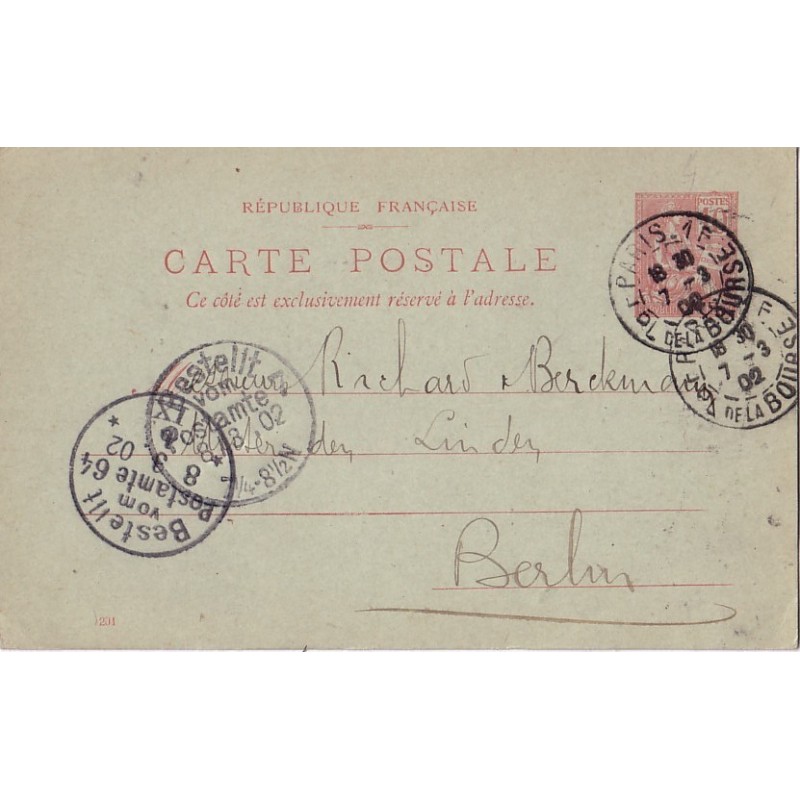 RÉPUBLIQUE FRANÇAISE
CARTE POSTALE
Ce côté est exclusivement réservé à l'adresse.
POSTES
PARIS-1
PL. DE LA BOURSE
18 30
7 - 3
02
PARIS
PL. DE LA BOURSE
18 30
7 - 3
02
Richard Berckmann
Unter den Linden
Berlin
Bestellt
vom
Postamte
8 3 02
1/4-8 1/2 N
Bestellt
vom
Postamte 64
8 3 02
201